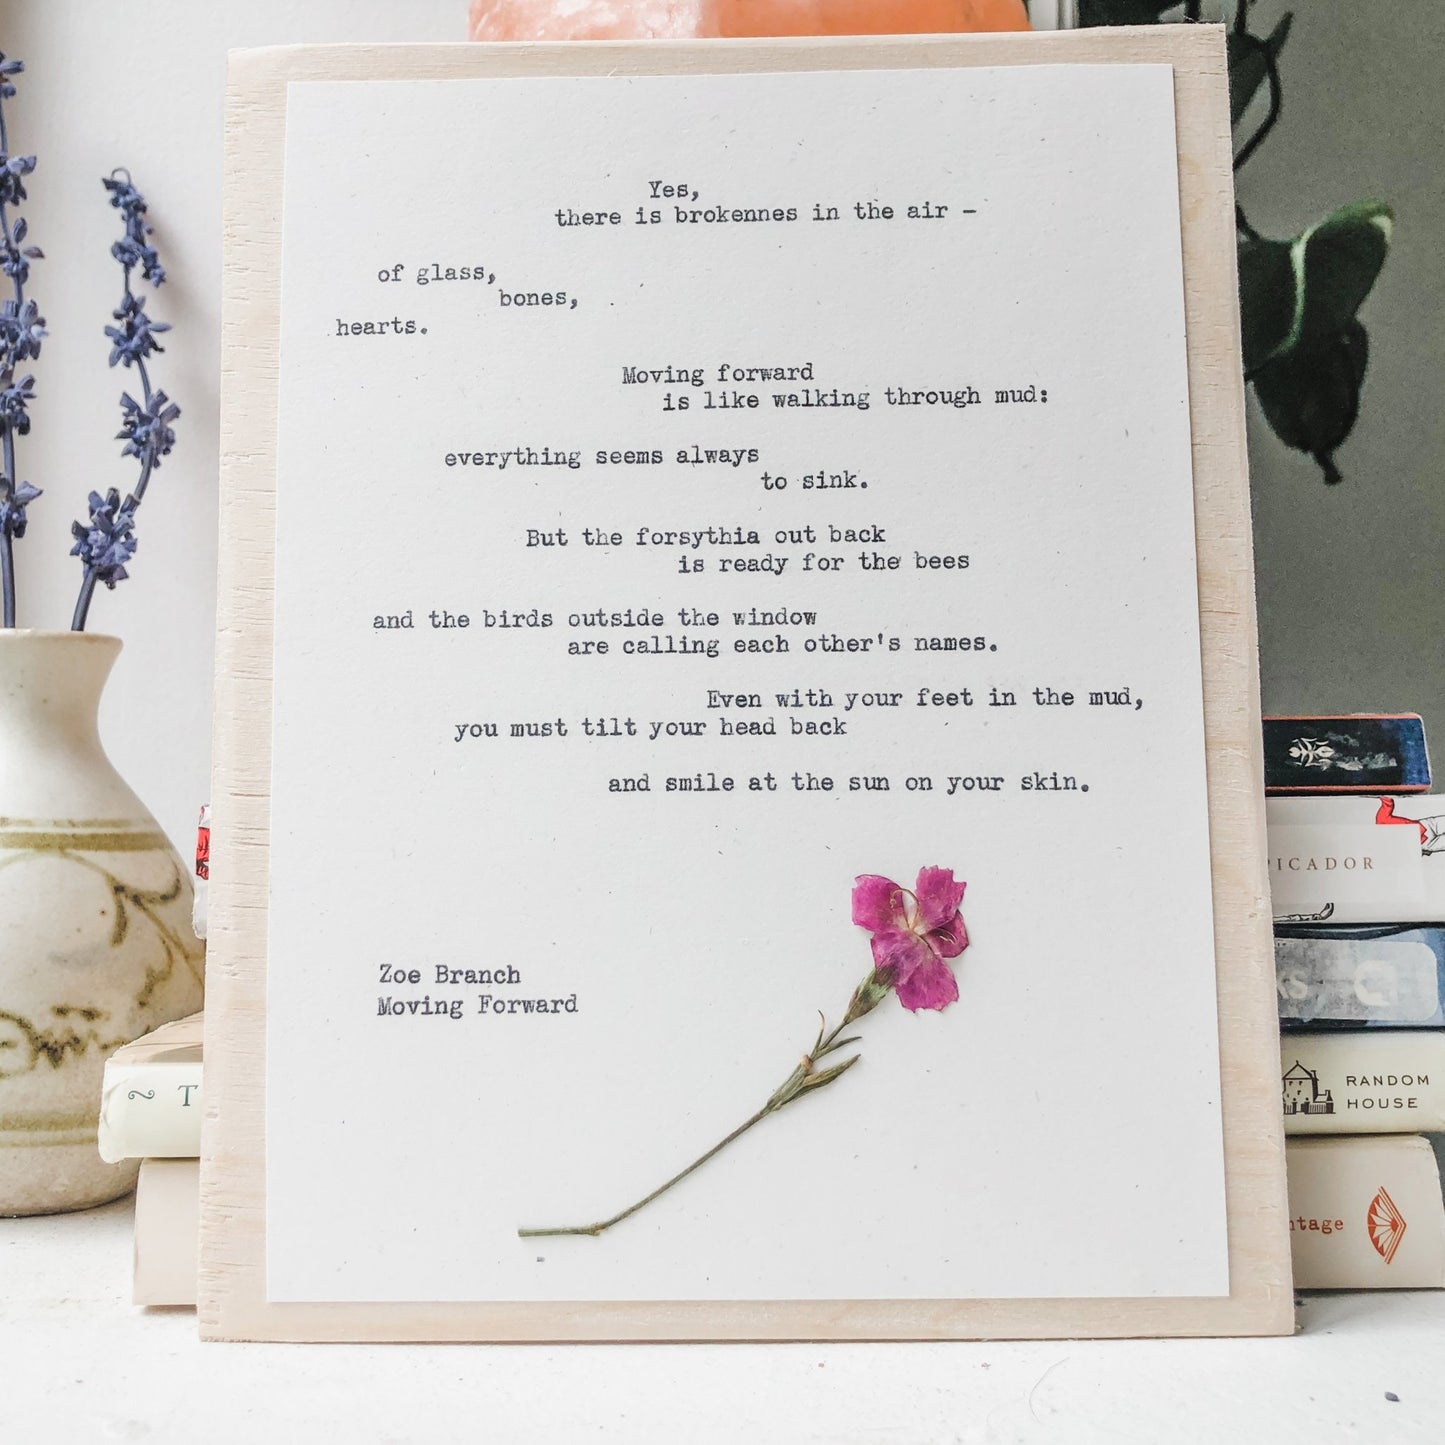 Yes,
there is brokennes in the air -
of glass,
bones,
hearts.
Moving forward
is like walking through mud:
everything seems always
to sink.
But the forsythia out back
is ready for the bees
and the birds outside the window
are calling each other's names.
Even with your feet in the mud,
you must tilt your head back
and smile at the sun on your skin.
Zoe Branch
Moving Forward
PICADOR
RANDOM
HOUSE
~ T